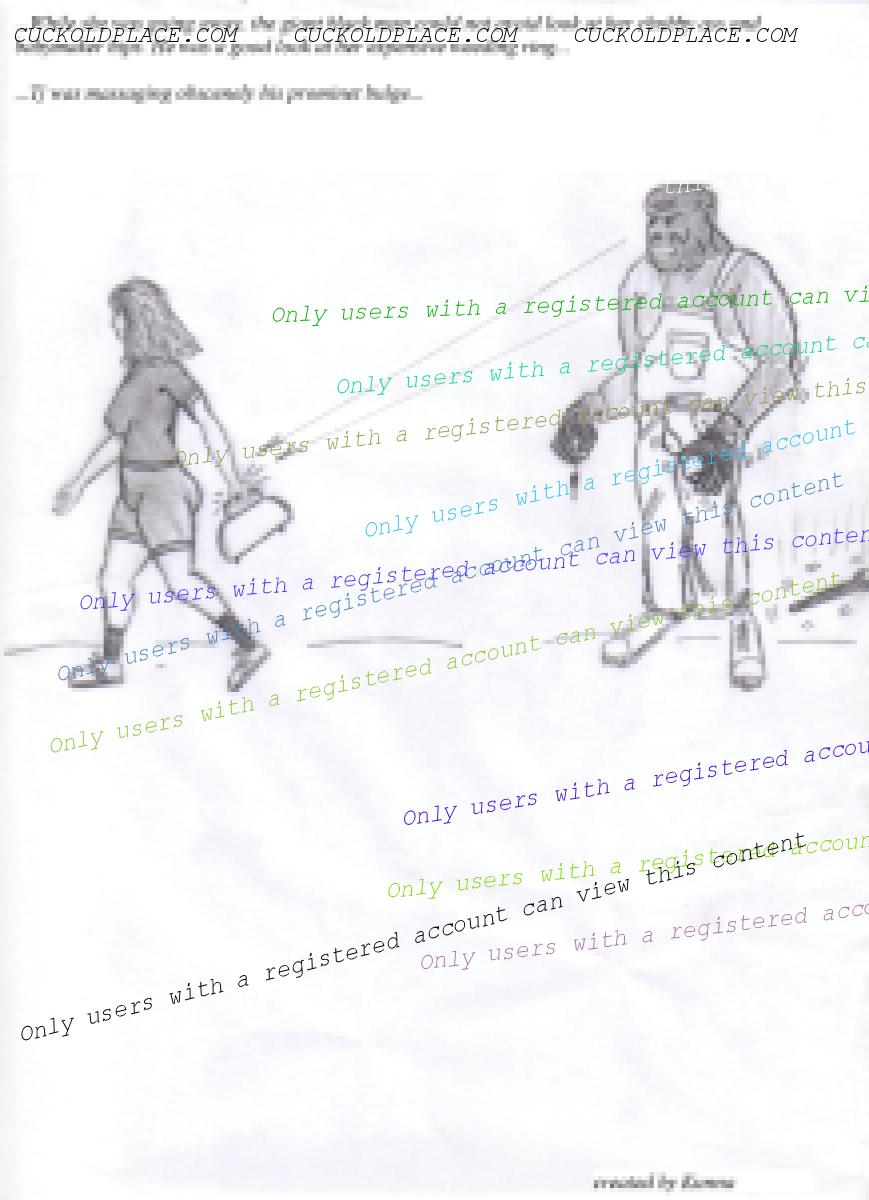 While she was going away, the giant black man could not avoid look at her chubby ass and
CUCKOLDPLACE.COM CUCKOLDPLACE.COM CUCKOLDPLACE.COM
He had a good look at her expensive wedding ring...
...Tj was massaging obscenely his prominet bulge...
this
Only users with a registered account can vi
Only users with a registered account ca
Only users with a registered account can view this
Only users with a registered account
Only users with a registered account can view this content
Only users with a registered account can view this conten
Only users with a registered account can view this content
Only users with a registered accou
Only users with a registered accoun
Only users with a registered account can view this content
Only users with a registered acco
created by